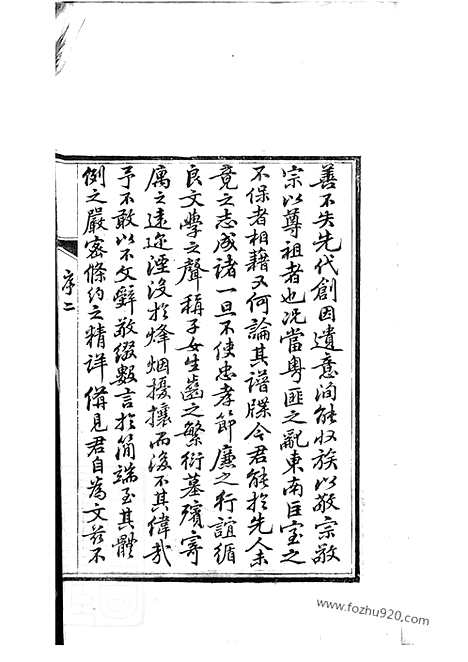 善不失先代創因遺意洵能收族以敬宗敬
宗以尊祖者也况當粤匪之亂東南巨室之
不保者相藉又何論其譜牒今君能於先人未
竟之志成諸一旦不使忠孝節廉之行誼循
良文學之聲稱子女生齒之繁衍墓殯寄
寓之遠邇湮沒於烽烟擾攘而後不其偉哉
予不敢以不文辭敬綴數言於簡端至其體
例之嚴密條約之精詳備見君自為文茲不
序二
www.fozhu920.com